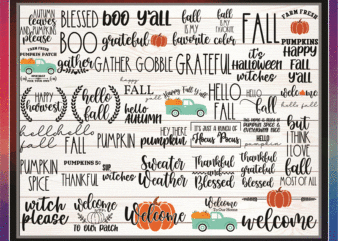 AUTUMN
LEAVES
AND
PUMPKINS
please
BLESSED
BOO Y'ALL
fall
IS MY
favorite color
FALL
IS MY
FAVORITE
FALL
FARM FRESH
PUMPKINS
FARM FRESH
PUMPKIN PATCH
BOO
grateful
it's
Halloween
witches
HAPPY
Fall
Y'ALL
gather
GATHER
GOBBLE
GRATEFUL
HAPPY
harvest
hello
fall
happy
FALL
y'all
Happy Fall Y'all
HELLO
FALL
Hello
fall
welcome
hello fall
hello
AUTUMN
but
I THINK
I love
fall
MOST OF ALL
hello
fall
hello
FALL
PUMPKIN
HEY THERE
pumpkin
IT'S JUST A BUNCH OF
Hocus Pocus
PUMPKIN SPICE &
HELLO
pumpkin
PUMPKIN
SPICE
PUMPKINS
THANKFUL
SUP
witches
Sweater
Weather
Thankful
and
Blessed
thankful
grateful
blessed
witch
please
Welcome
TO OUR PATCH
Welcome
Welcome
To Our Home
welcome